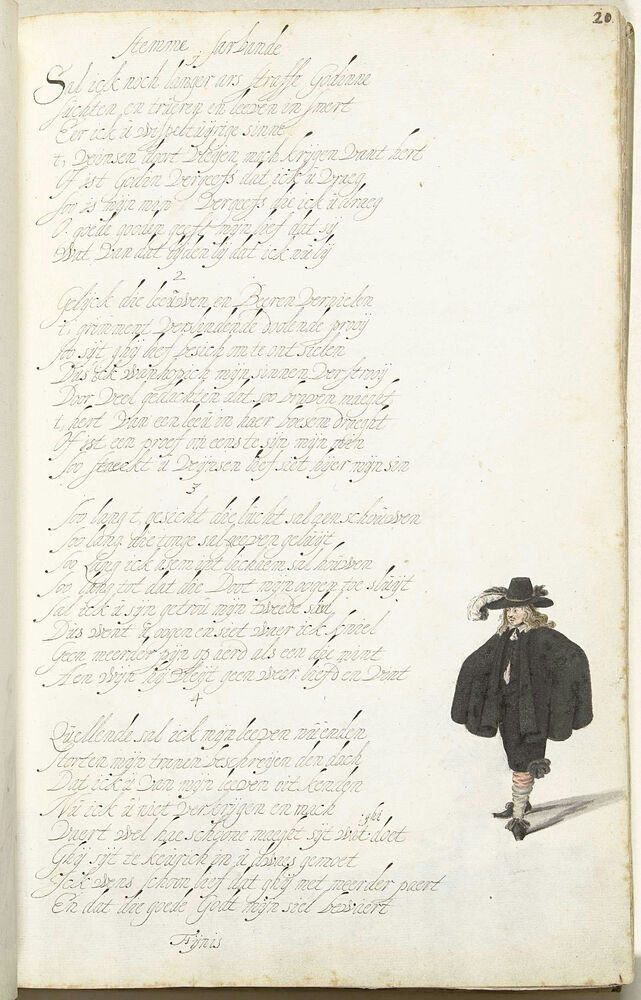 20
Stemme Sarbande
1
Sal ick noch langer ars straffe Godinne
suchten en trueren en leeven in smert
Eer ick u wispeltuijrige sinne
t, veijnsen doet vliegen mach krijgen vant hert
Of ist Godin vergeefs dat ick u vraeg
soo is mijn min vergeefs die ick u draeg
O goede gooden geeft mijn lief dat sij
Wat van dat lijden lij dat ick nu lij
2
Gelijck die leeuwen en Beeren vernielen
t, grimment verslindende doolende prooij
soo sijt ghij lief besich om te ontsielen
Dus ick wanhopich mijn sinnen verstrooij
Door veel gedachten dat soo braven maeght
t, hert van een leeu in haer boesem draeght
Of ist een proef om eens te sien mijn
Soo staeckt u veijnsen lief siet hijer mijn sin
3
Soo lang t, gesicht die lucht sal aenschouwen
soo lang die tonge sal geeven geluijt
soo lang ick asem int lichaem sal houwen
soo lang tot dat die Doot mijn oogen toe sluijt
sal ick u sijn getrou mijn tweede siel
Dus went u oogen en siet waer ick kniel
Geen meerder pijn op aerd als een die mint
Alen wijk hij vleijt geen weer liefd en vint
4
Quellende sal ick mijn leeven nu enden
storten mijn tranen beschreijen den dach
Dat ick u van mijn leeven oit kenden
Nu ick u niet verkrijgen en mach
Vaert wel hae schoone maeght sijt wat ghi doet
Ghij sijt te kensich en u gemoet
Ick wens schoon lief dat ghij met meerder paert
En dat die goede Godt mijn siel bewaert
Fijnis